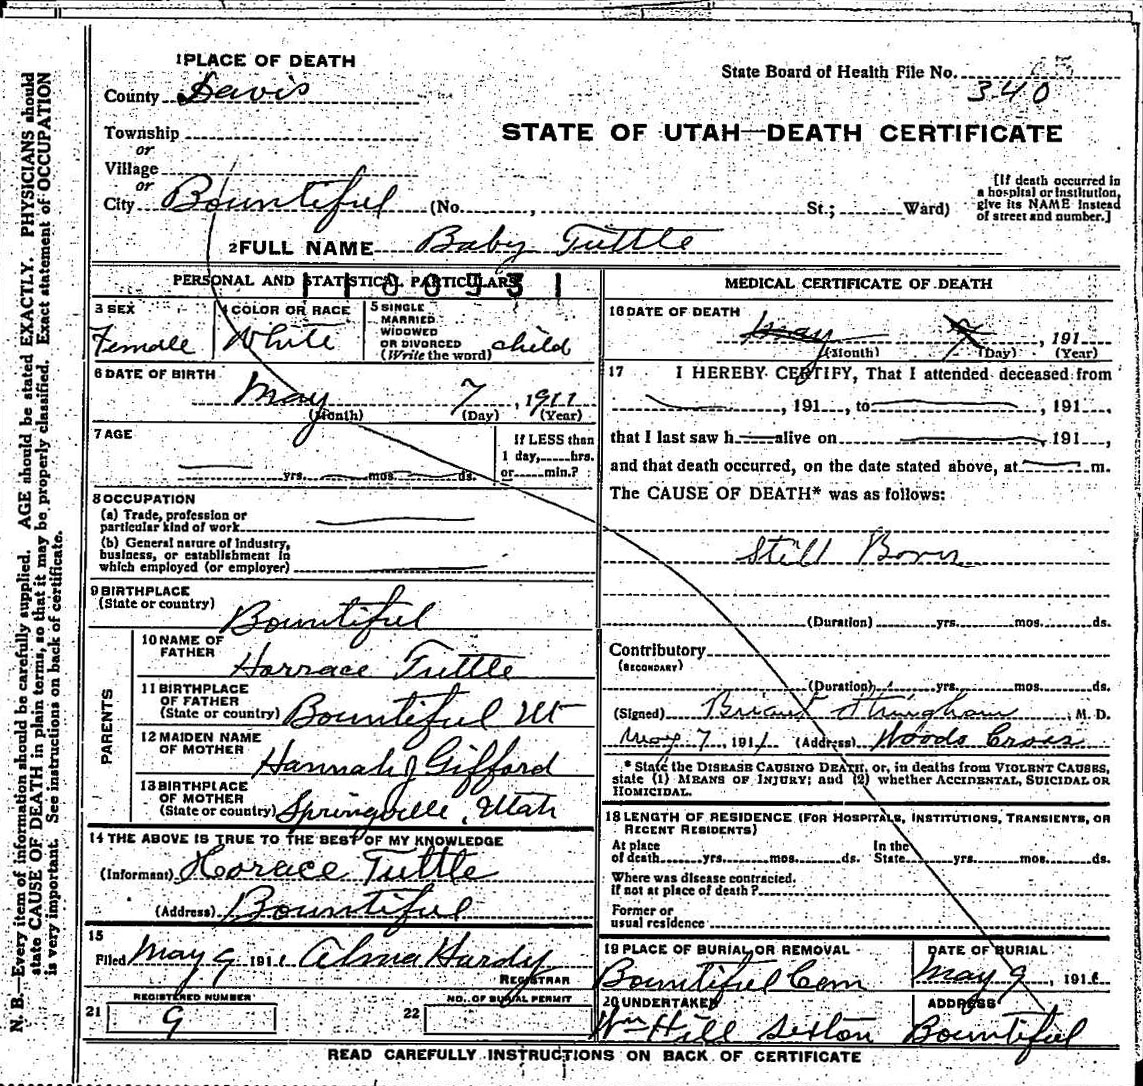 1 PLACE OF DEATH
State Board of Health File No.
County Davis
340
Township
STATE OF UTAH—DEATH CERTIFICATE
or
Village
or
City Bountiful (No. , St.; Ward)
[If death occurred in
a hospital or institution,
give its NAME instead
of street and number.]
2 FULL NAME Baby Tuttle
PERSONAL AND STATISTICAL PARTICULARS
3 SEX
Female
4 COLOR OR RACE
White
5 SINGLE
MARRIED
WIDOWED
OR DIVORCED
(Write the word) child
6 DATE OF BIRTH
May 7, 1911
(Month) (Day) (Year)
7 AGE
yrs. mos. ds.
If LESS than
1 day, hrs.
or min.?
8 OCCUPATION
(a) Trade, profession or
particular kind of work
(b) General nature of Industry,
business, or establishment in
which employed (or employer)
9 BIRTHPLACE
(State or country) Bountiful
PARENTS
10 NAME OF
FATHER
Horrace Tuttle
11 BIRTHPLACE
OF FATHER
(State or country) Bountiful Ut
12 MAIDEN NAME
OF MOTHER
Hannah J Gifford
13 BIRTHPLACE
OF MOTHER
(State or country) Springville, Utah
14 THE ABOVE IS TRUE TO THE BEST OF MY KNOWLEDGE
(Informant) Horace Tuttle
(Address) Bountiful
15
Filed May 9 1911 Alma Hardy
REGISTRAR
REGISTERED NUMBER
21 9
NO. OF BURIAL PERMIT
22
MEDICAL CERTIFICATE OF DEATH
16 DATE OF DEATH
May , 191
(Month) (Day) (Year)
17 I HEREBY CERTIFY, That I attended deceased from
, 191 , to , 191 ,
that I last saw h alive on 191 ,
and that death occurred, on the date stated above, at m.
The CAUSE OF DEATH* was as follows:
Still Born
(Duration) yrs. mos. ds.
Contributory
(SECONDARY)
(Duration) yrs. mos. ds.
(Signed) Briant Stringham, M. D.
May 7, 1911 (Address) Woods Cross
* State the DISEASE CAUSING DEATH, or, in deaths from VIOLENT CAUSES,
state (1) MEANS OF INJURY; and (2) whether ACCIDENTAL, SUICIDAL OR
HOMICIDAL.
18 LENGTH OF RESIDENCE (FOR HOSPITALS, INSTITUTIONS, TRANSIENTS, OR
RECENT RESIDENTS)
At place
of death yrs. mos. ds.
In the
State yrs. mos. ds.
Where was disease contracted.
if not at place of death?
Former or
usual residence
19 PLACE OF BURIAL OR REMOVAL
Bountiful Cem
DATE OF BURIAL
May 9, 191
20 UNDERTAKER
Wm Hill Sexton
ADDRESS
Bountiful
READ CAREFULLY INSTRUCTIONS ON BACK OF CERTIFICATE
N. B.—Every item of information should be carefully supplied. AGE should be stated EXACTLY. PHYSICIANS should
state CAUSE OF DEATH in plain terms, so that it may be properly classified. Exact statement of OCCUPATION
is very important. See instructions on back of certificate.